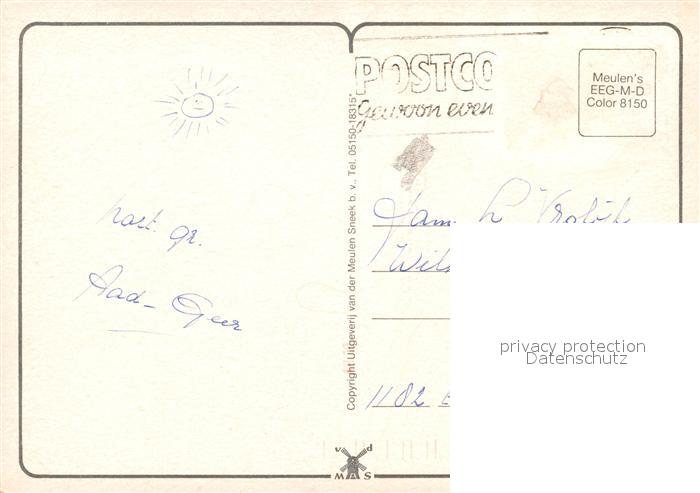 POSTCO
gewoon even
Meulen's
EEG-M-D
Color 8150
Copyright Uitgeverij van der Meulen Sneek b.v., Tel. 05150-18315*
hart. gr.
Aad - Geer
Fam. L Vrolijk
Wils
1182
privacy protection
Datenschutz
v d
MAS